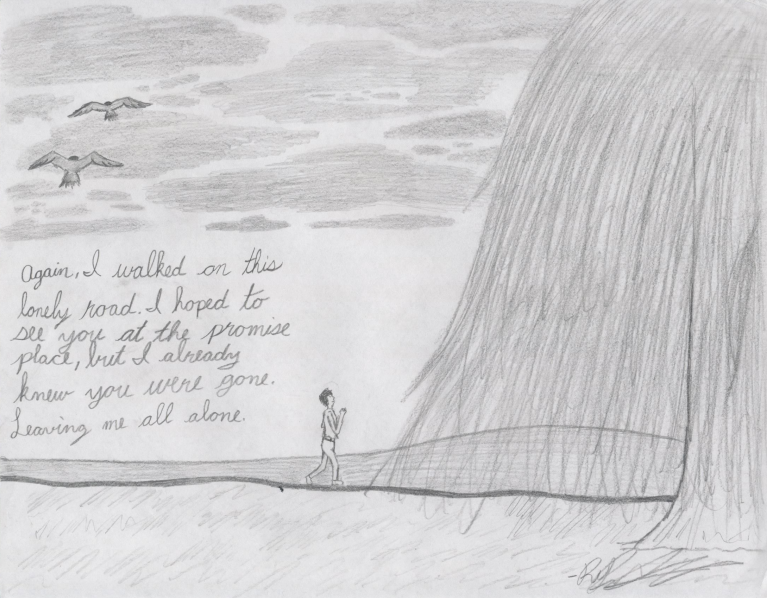 Again, I walked on this
lonely road. I hoped to
see you at the promise
place, but I already
knew you were gone.
Leaving me all alone.